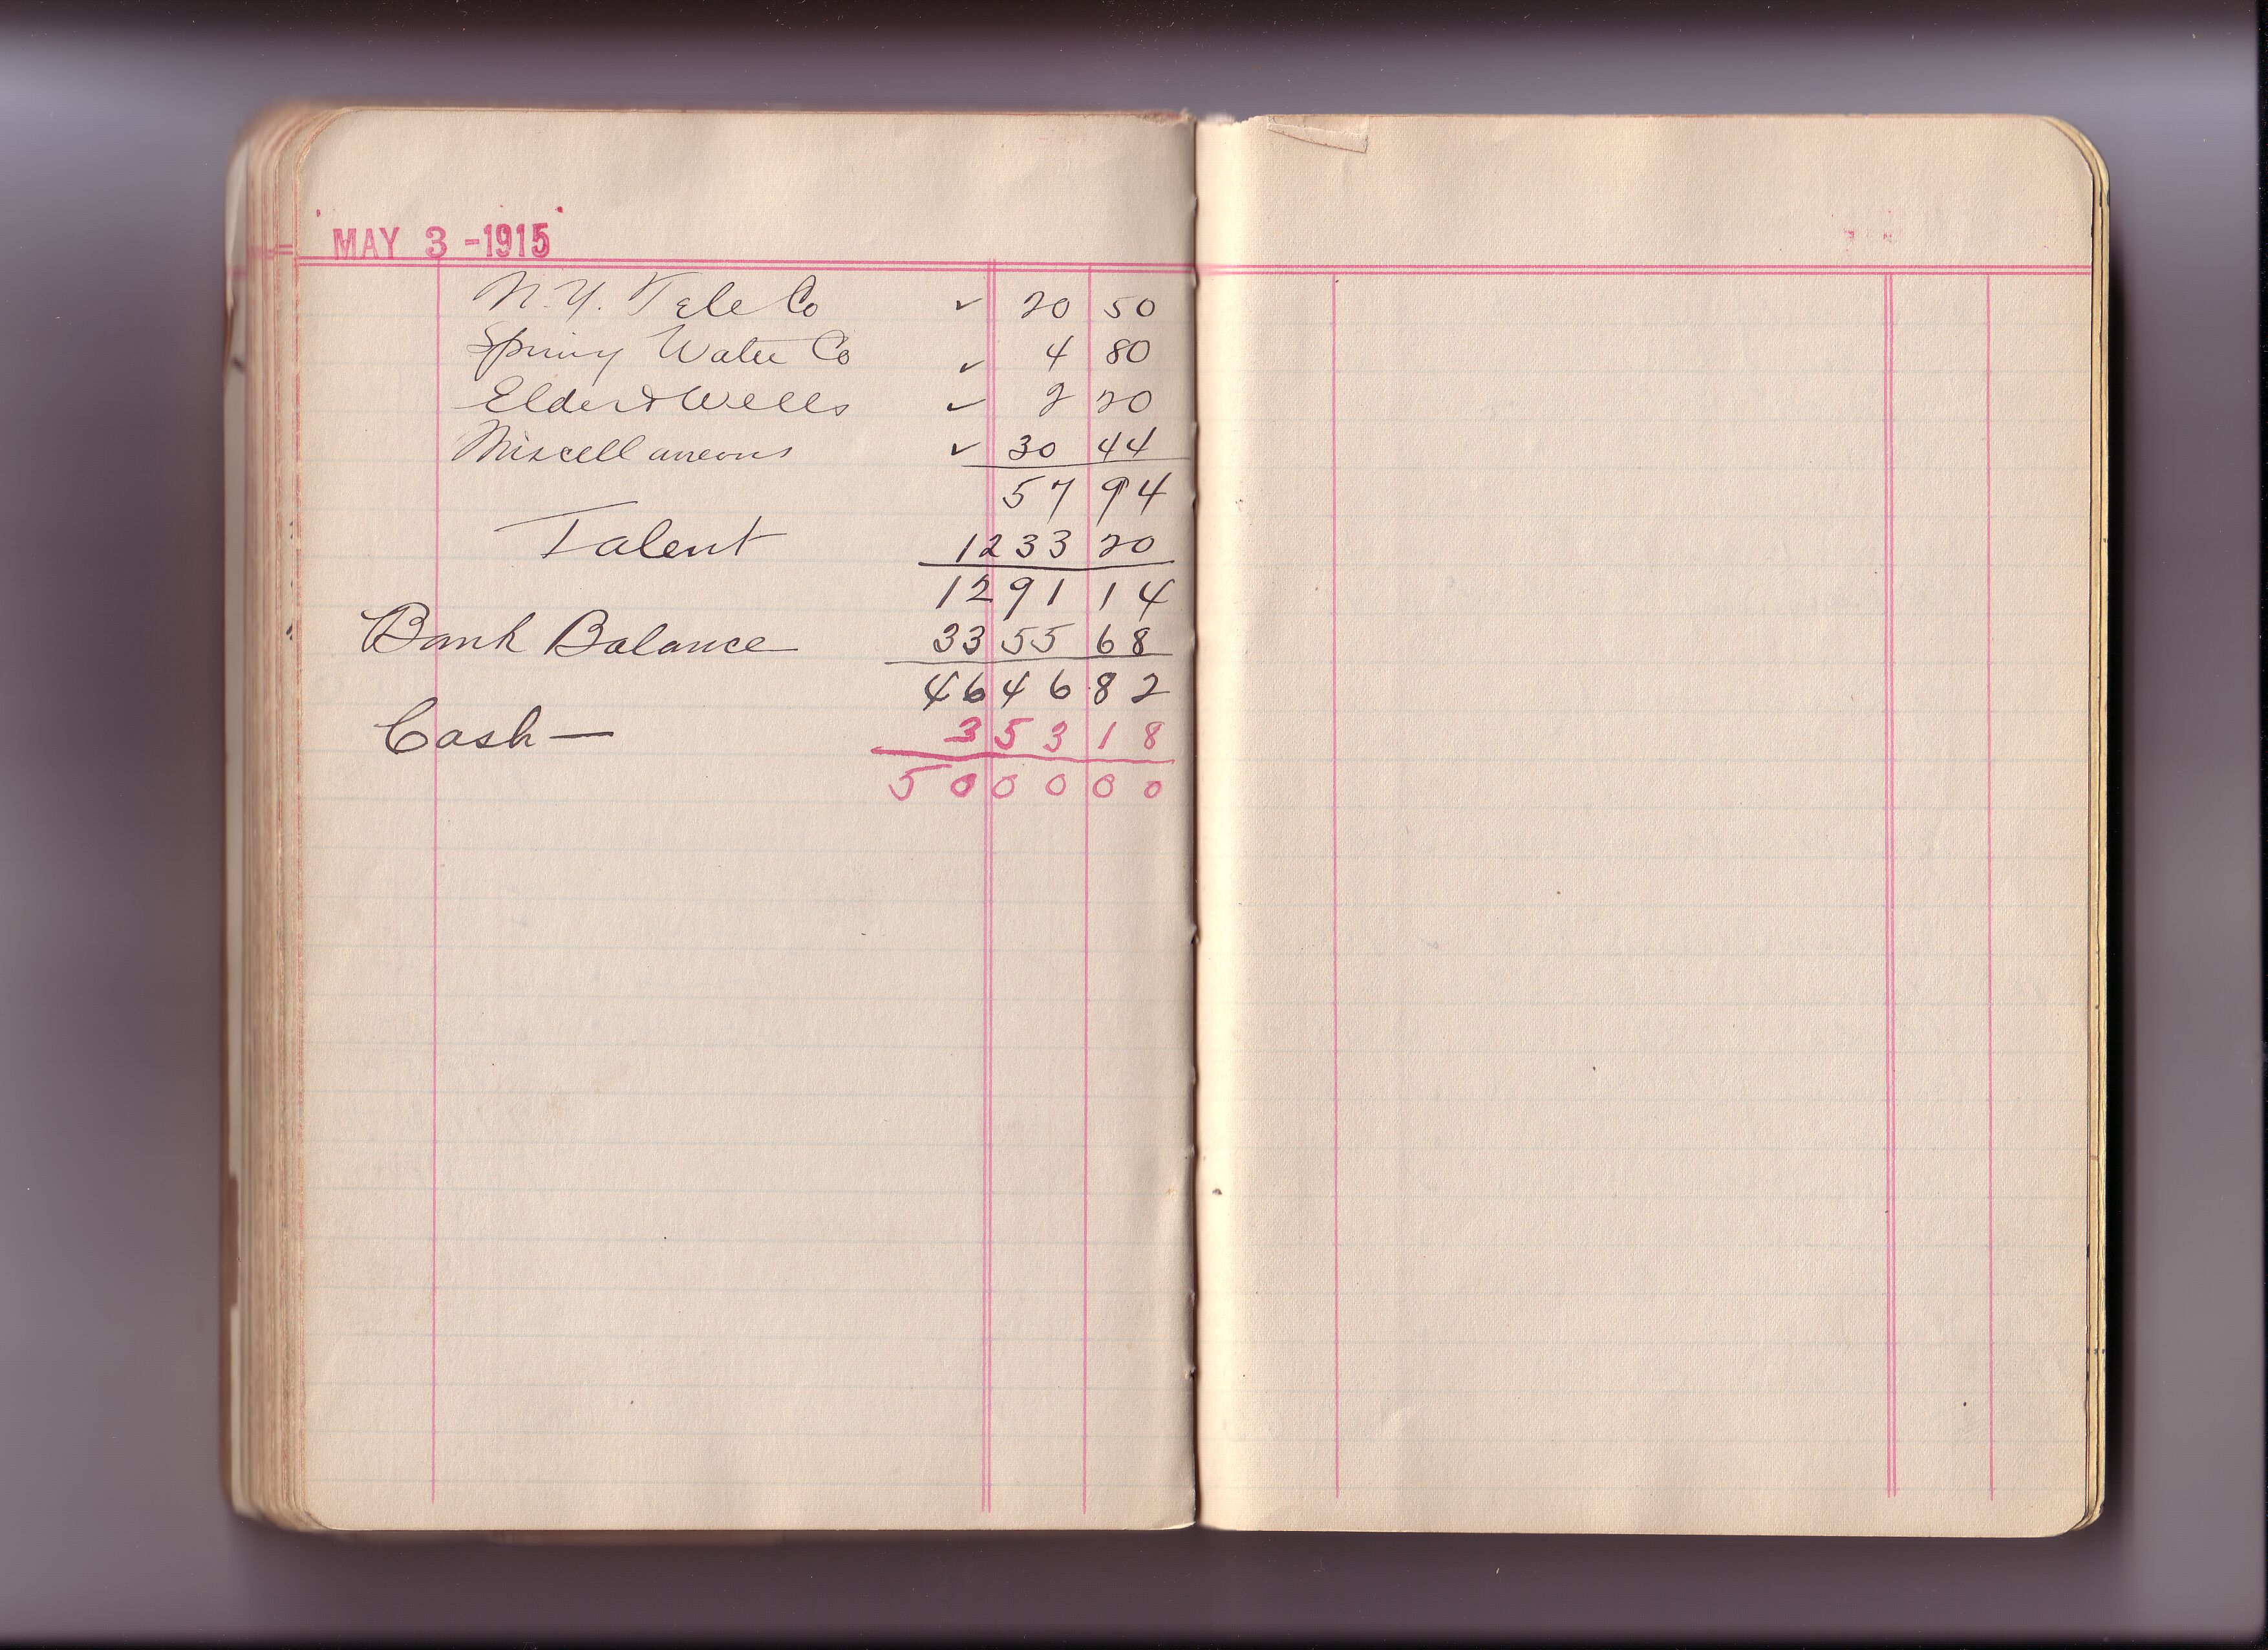 MAY 3 -1915
N.Y. Tele Co ✓ 20 50
Spring Water Co ✓ 4 80
Elder & Wells ✓ 2 20
Miscellaneous ✓ 30 44
57 94
Talent 1233 20
1291 14
Bank Balance 3355 68
4646 82
Cash — 353 18
5000 00